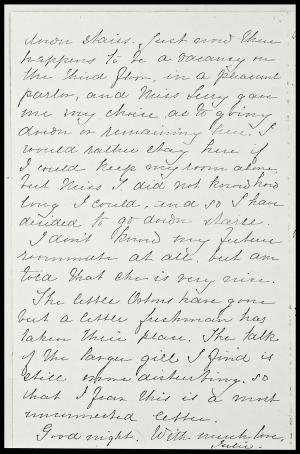 down stairs. Just now there
happens to be a vacancy on
the third floor, in a pleasant
parlor, and Miss Seny gave
me my choice as to going
down or remaining here. I
would rather stay here if
I could keep my room alone,
but Miss S. did not know how
long I could, and so I have
decided to go down stairs.
I don't know my future
roommate at all, but am
told that she is very nice.
The little Ortons have gone
but a little freshman has
taken their place. The talk
of the larger girl I find is
still more disturbing, so
that I fear this is a most
unconnected letter.
Good night. With much love,
Julie.